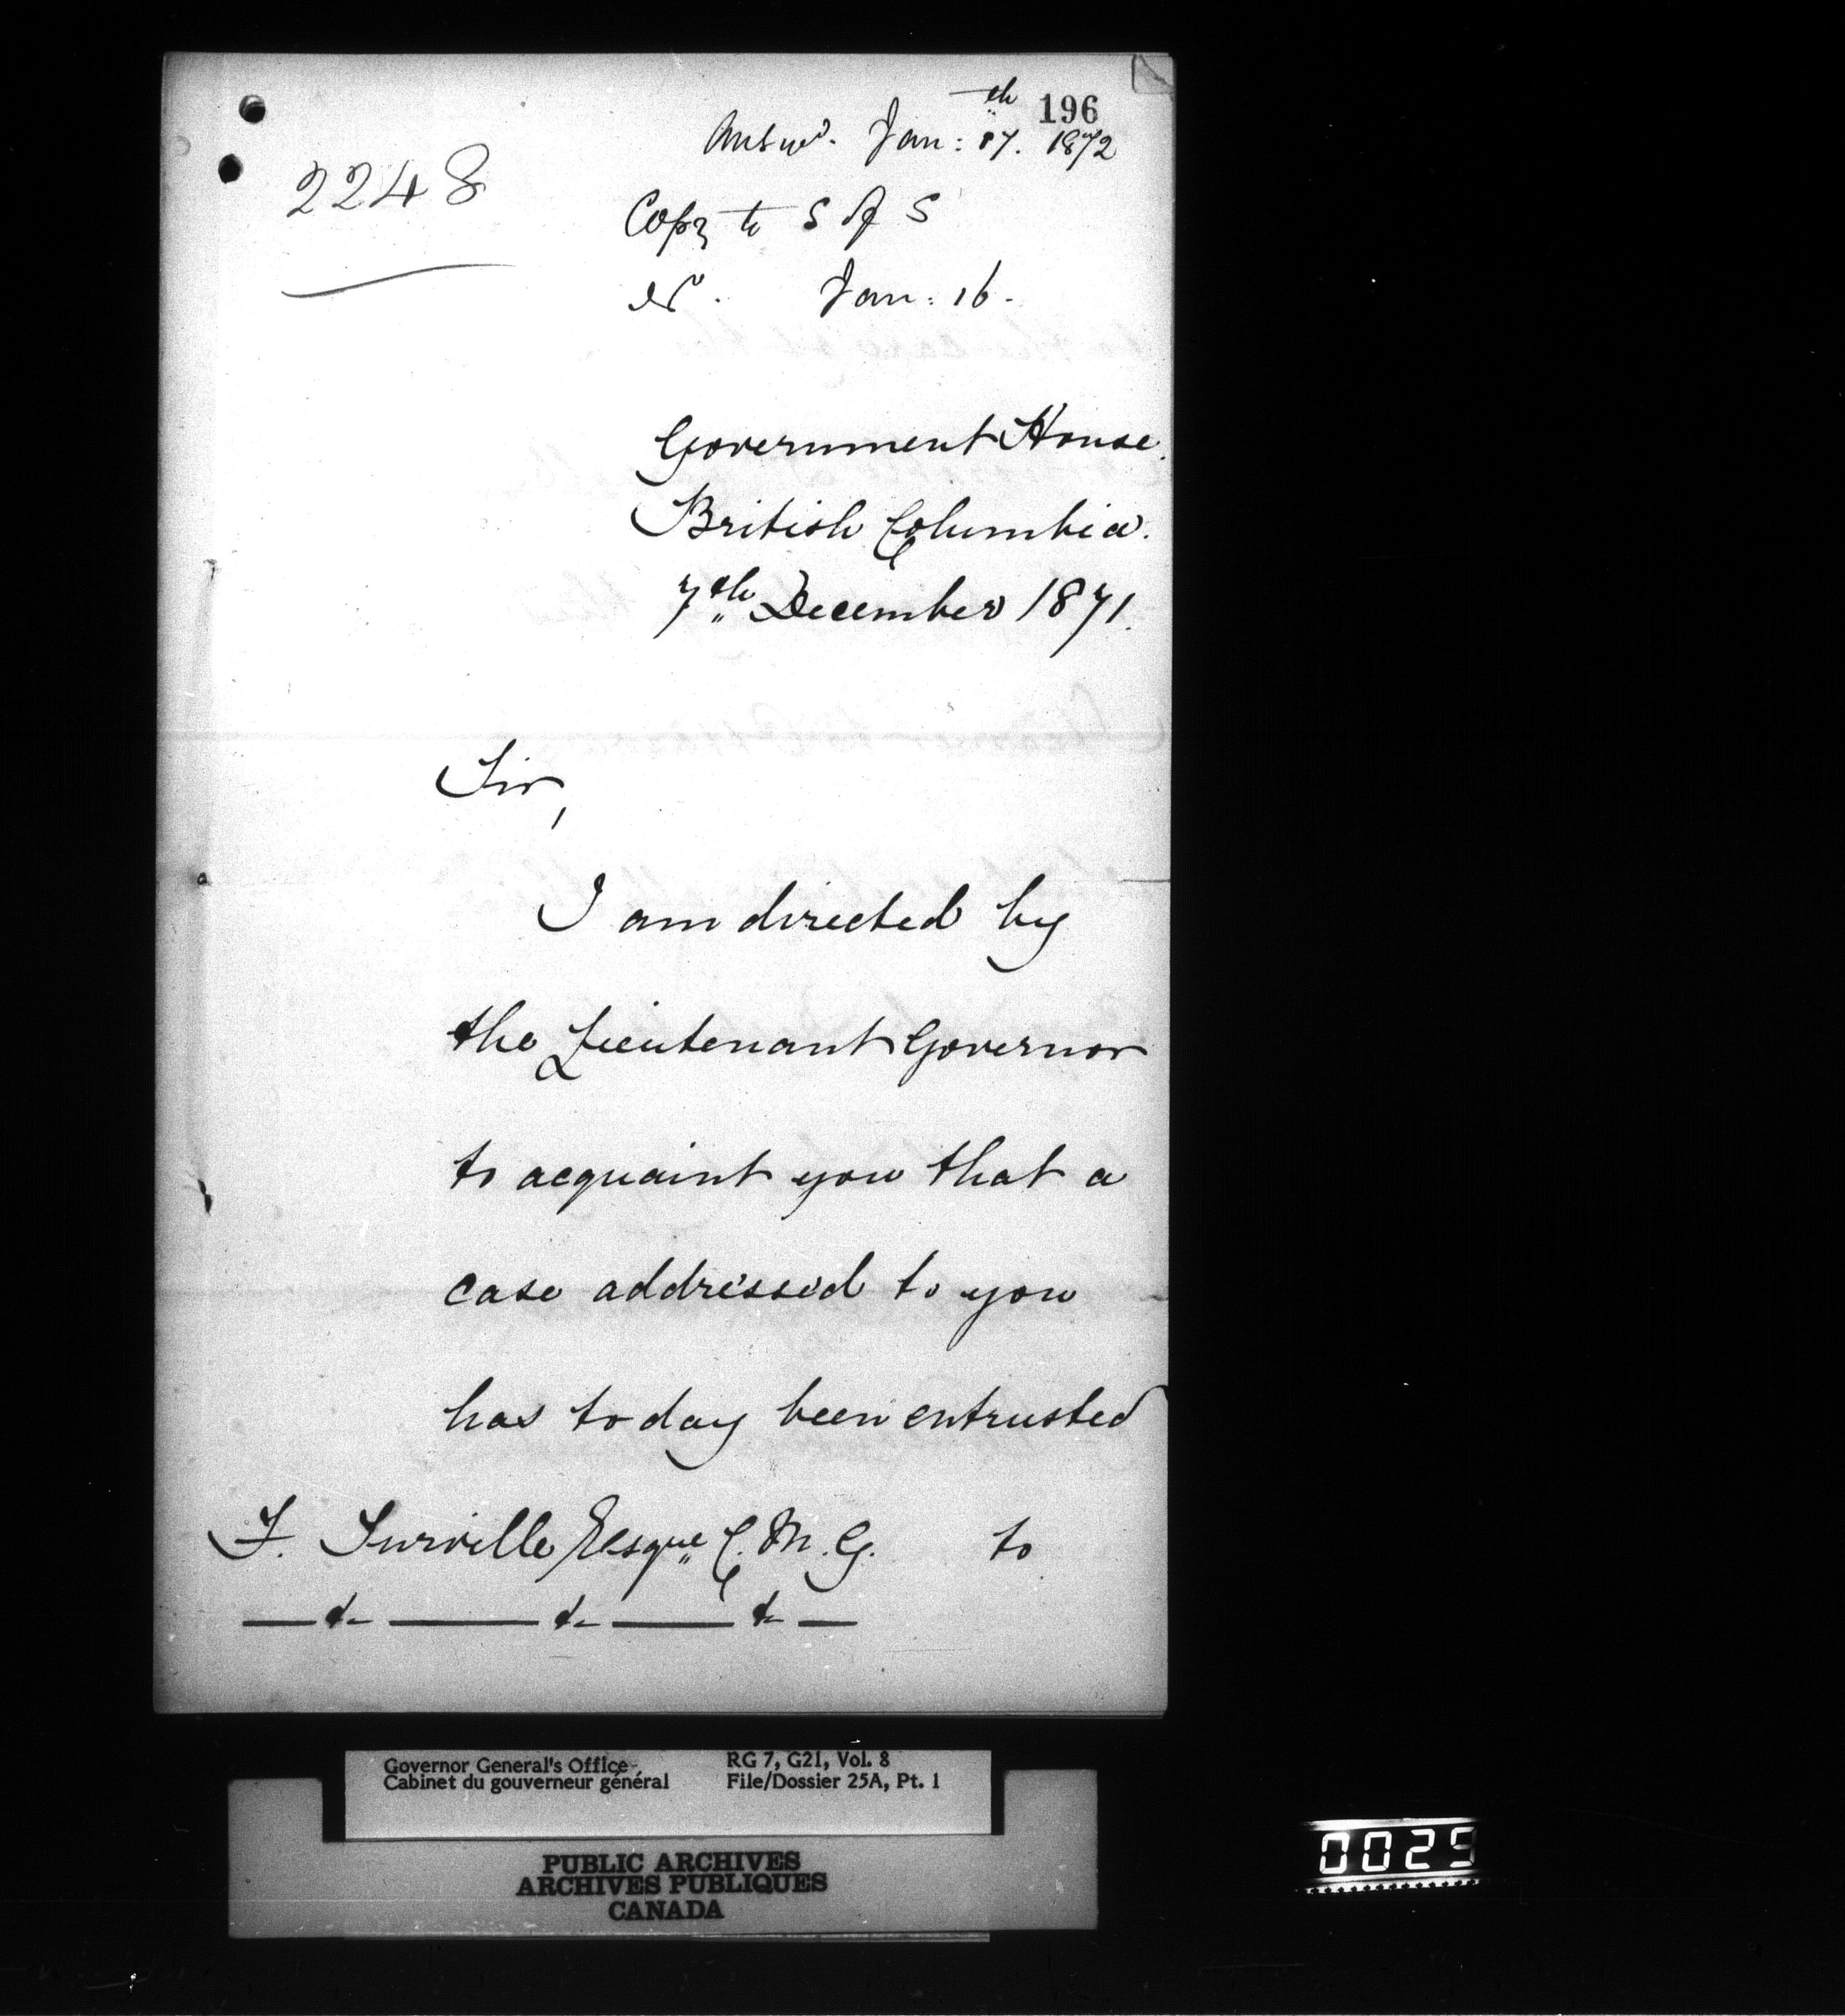 196
Answd. Jan: 17th. 1872
2248
Copy to S of S
Jan: 16.
Government House.
British Columbia.
7th December 1871.
Sir,
I am directed by
the Lieutenant Governor
to acquaint you that a
case addressed to you
has today been entrusted
F. Turville Esque C.M.G. to
— &c — &c — &c —
Governor General's Office
Cabinet du gouverneur général
RG 7, G21, Vol. 8
File/Dossier 25A, Pt. 1
PUBLIC ARCHIVES
ARCHIVES PUBLIQUES
CANADA
0025